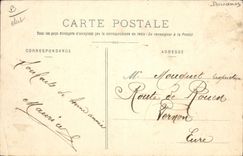 CARTE POSTALE
Tous les pays étrangers n'acceptent pas la correspondance au recto. (Se renseigner à la Poste)
CORRESPONDANCE
ADRESSE
Souhaits de bonne année
Mr Mouquet
Route de Rouen
Vernon
Eure